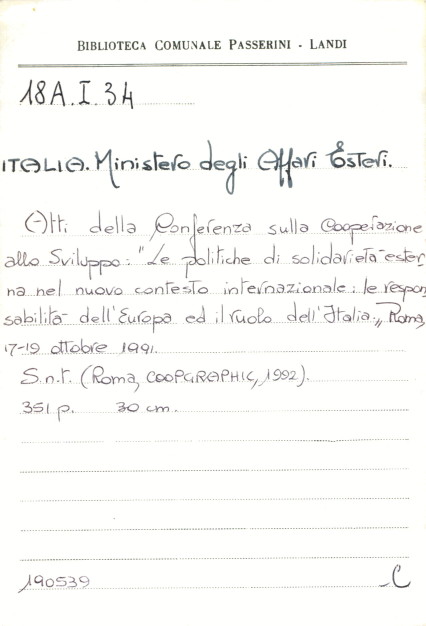 BIBLIOTECA COMUNALE PASSERINI - LANDI
18A.I.34
ITALIA. Ministero degli Affari Esteri.
Atti della Conferenza sulla Cooperazione
allo Sviluppo: "Le politiche di solidarietà ester
na nel nuovo contesto internazionale: le respon
sabilità dell'Europa ed il ruolo dell'Italia", Roma,
17-19 ottobre 1991.
S.n.t. (Roma, COOPGRAPHIC, 1992).
351 p. 30 cm.
190539 C